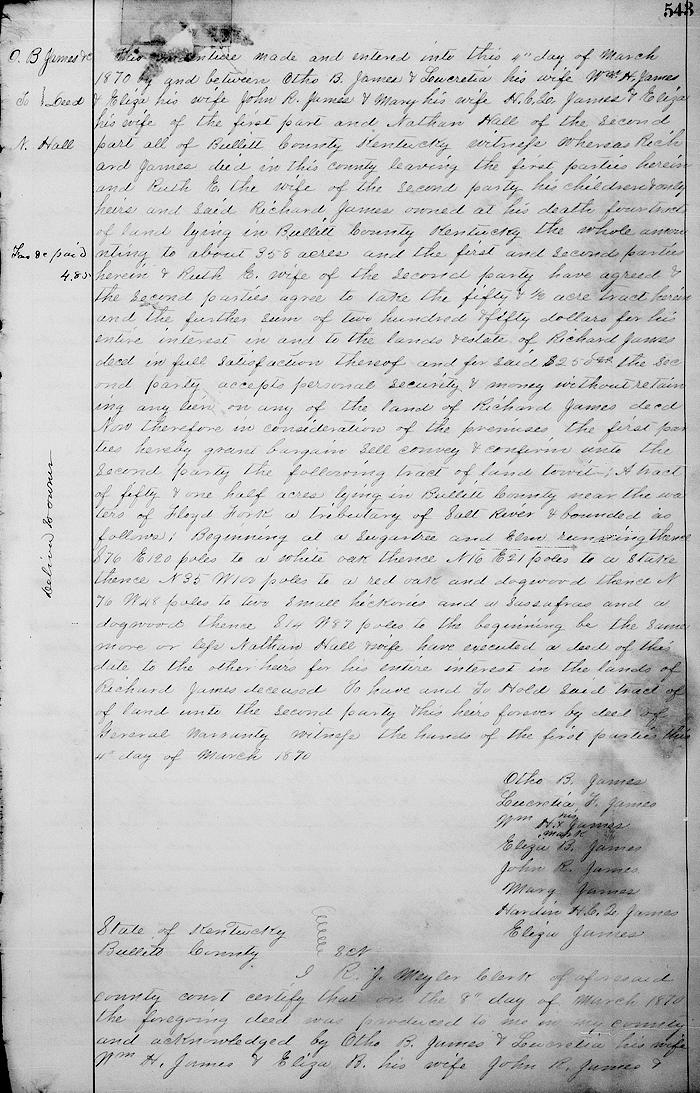 543
O. B James &c
To } Deed
N. Hall
Tax &c paid
4.85
Delivd to owner
This indenture made and entered into this 4" day of March
1870 by and between Otho B. James & Lucretia his wife Wm H. James
& Eliza his wife John R. James & Mary his wife H.C.Q. James & Eliza
his wife of the first part and Nathan Hall of the second
part all of Bullett County Kentucky witness Whereas Rich
ard James died in this county leaving the first parties herein
and Ruth E. the wife of the second party his children & only
heirs and said Richard James owned at his death four tracts
of land lying in Bullitt County Kentucky the whole amou
nting to about 358 acres and the first and second parties
herein & Ruth E. wife of the second party have agreed &
the second parties agree to take the fifty & ½ acre tract herein
and the further sum of two hundred & fifty dollars for his
entire interest in and to the lands & estate of Richard James
decd in full satisfaction thereof and for said $250 the Sec
ond party accepts personal security & money without retain
ing any lien on any of the land of Richard James decd
Now therefore in consideration of the premises the first par
ties hereby grant bargain sell convey & confirm unto the
second party the following tract of land towit; A tract
of fifty & one half acres lying in Bullitt County near the wa
ters of Floyd Fork a tributary of Salt River & bounded as
follows; Beginning at a Sugartree and Elm running thence
S76 E120 poles to a white oak thence N16 E21 poles to a Stake
thence N35 W108 poles to a red oak and dogwood thence N
76 W48 poles to two small hickories and a Sassafras and a
dogwood thence S14 W87 poles to the beginning be the same
more or less Nathan Hall & wife have executed a deed of this
date to the other heirs for his entire interest in the lands of
Richard James deceased To have and To Hold said tract of
of land unto the second party & his heirs forever by deed of
General Warranty witness the hands of the first parties this
4" day of March 1870
Otho B. James
Lucretia F. James
Wm H. x James
his
mark
Eliza B. James
John R. James
Mary James
Hardin H.C.Q. James
Eliza James
State of Kentucky
Bullitt County Sct
I R. J. Meyler Clerk of aforesaid
county court certify that on the 8" day of March 1870
the foregoing deed was produced to me in my county
and acknowledged by Otho B. James & Lucretia his wife
Wm H. James & Eliza B. his wife John R. James &